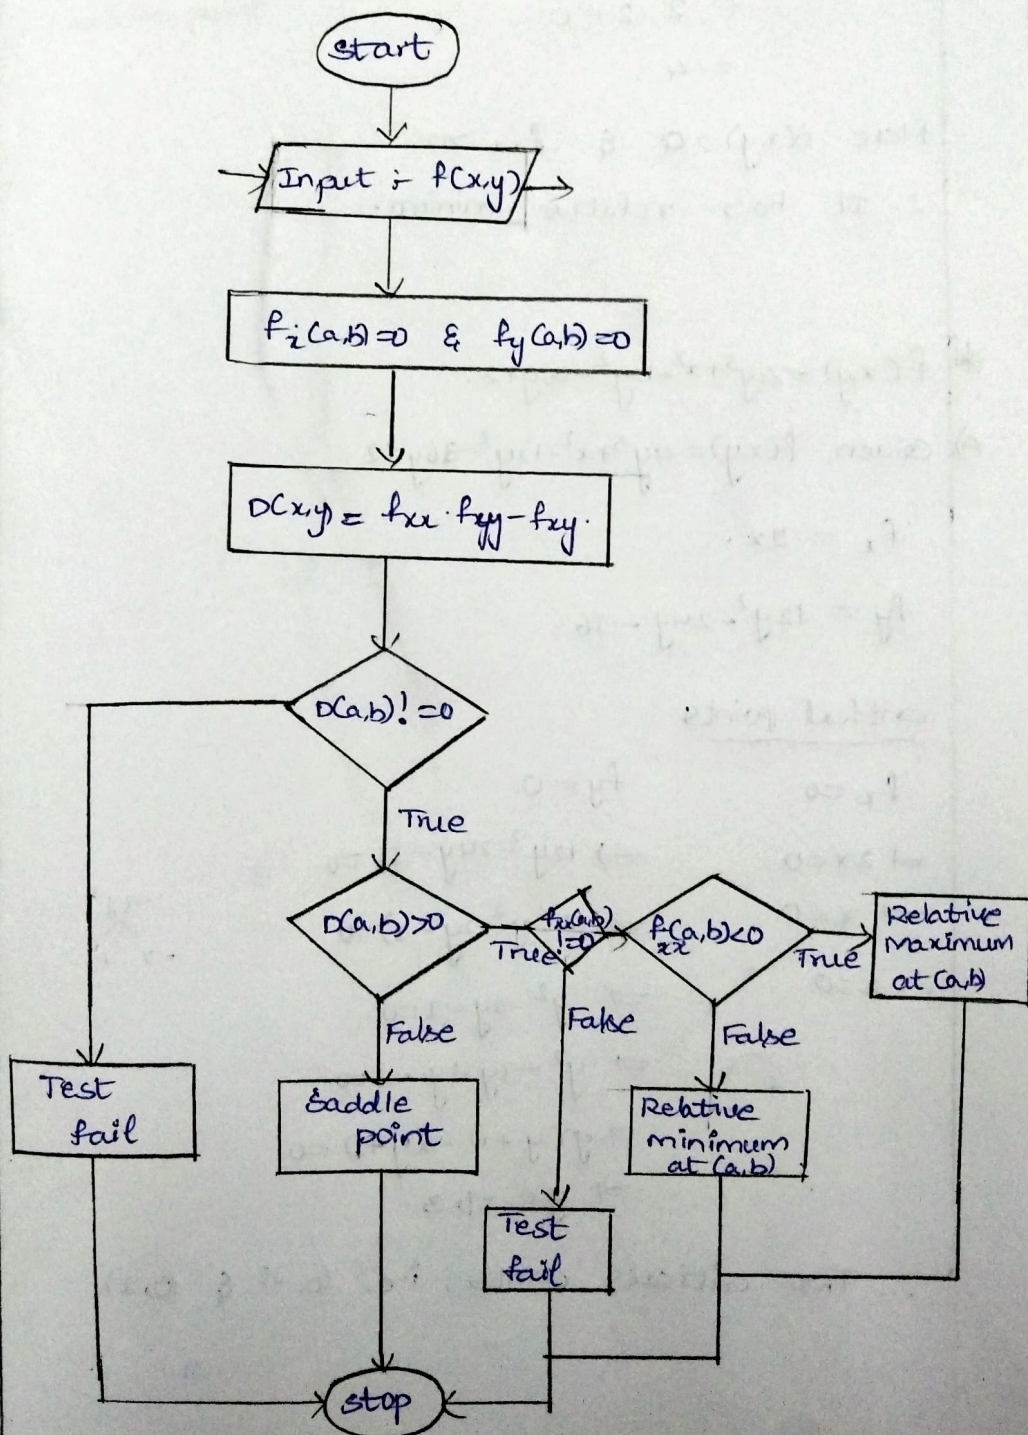 start
Input :- f(x,y)
fx(a,b)=0 & fy(a,b)=0
D(x,y) = fxx · fyy - fxy.
D(a,b)! =0
True
D(a,b)>0
True
fxx(a,b)
!=0
fxx(a,b)<0
True
Relative
maximum
at (a,b)
False
False
False
Test
fail
Saddle
point
Relative
minimum
at (a,b)
Test
fail
stop